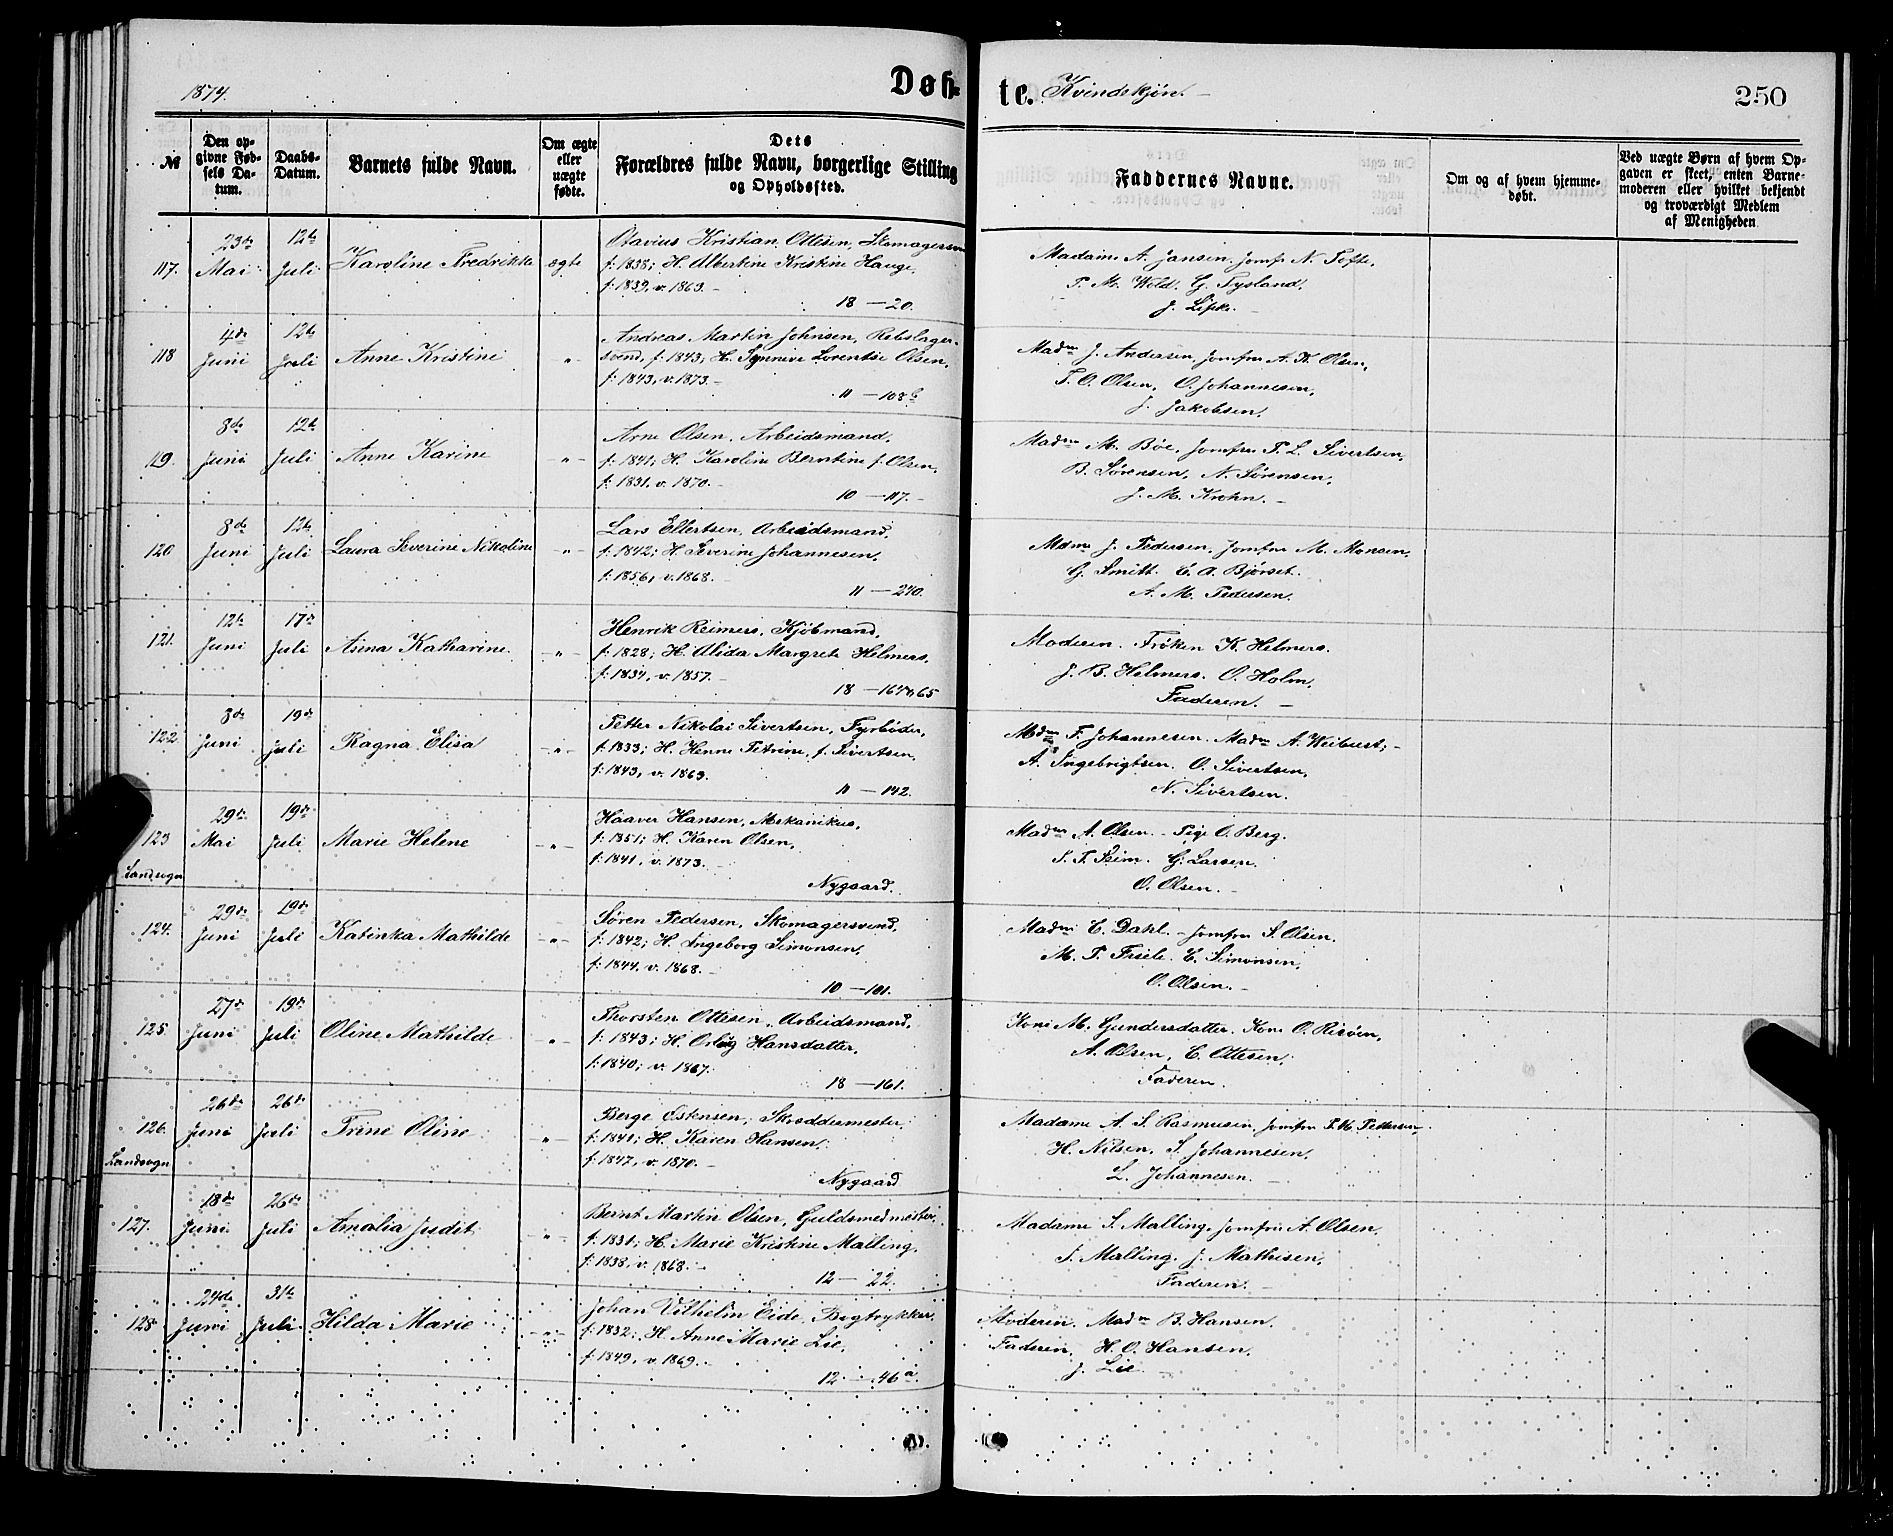 1874.
Døbte. Kvindekjøn.
250
№
Den opgivne Fødsels Datum.
Daabs-Datum.
Barnets fulde Navn.
Om ægte eller uægte fødte.
Dets Forældres fulde Navn, borgerlige Stilling og Opholdssted.
Faddernes Navne.
Om og af hvem hjemmedøbt.
Ved uægte Børn af hvem Opgaven er skeet, enten Barnemoderen eller hvilket bekjendt og troværdigt Medlem af Menigheden
117. 23de Mai 12te Juli Karoline Fredrikke ægte
Otavius Kristian Ottesen, Skomagersvend
f: 1838; H. Albertine Kristine Hauge,
f: 1839, v. 1863.
18 – 20.
Madame A. Jansen. Jomfr N. Tofte,
T. M. Wold. G. Tysland,
J. Lipke.
118 4de Juni 12te Juli Anne Kristine "
Andreas Martin Johnsen, Rebslager-
svend, f: 1843; H. Synneve Lorentse Olsen,
f: 1843, v. 1873.
11 – 108b
Madm J. Andersen, Jomfru A. K. Olsen,
T. O. Olsen, O. Johannesen,
J. Jakobsen.
119. 3de Juni 12te Juli Anne Karine "
Arne Olsen. Arbeidsmand,
f: 1841; H. Karoline Berntine f. Olsen,
f: 1831. v. 1870.
10 – 117.
Madm M. Bøe, Jomfru T. L. Sivertsen,
B. Sørensen, N. Sørensen,
J. M. Krohn.
120 3de Juni 12te Juli Laura Severine Nikoline "
Lars Ellertsen, Arbeidsmand,
f: 1842; H. Severine Johannesen,
f: 1856, v. 1868.
11 – 240.
Mdme J. Pedersen, Jomfru M. Monsen,
G. Smitt. C. A. Bjørset.
A. M. Pedersen.
121. 12te Juni 17de Juli Anna Katharine "
Henrik Reimers, Kjøbmand,
f: 1828; H. Alida Margrete Helmers,
f: 1834, v. 1857.
18 – 164, 65
Moderen. Frøken K. Helmers.
J. B. Helmers. O. Holm,
Faderen.
122 3de Juni 19de Juli Ragna Elisa "
Petter Nikolai Sivertsen, Fyrbøder,
f: 1833; H. Henne Petrine, f. Sivertsen,
f: 1843, v. 1863.
11 – 142.
Mdm F. Johannesen. Madm A. Weibust;
A. Ingebrigtsen. O. Sivertsen,
N. Sivertsen.
123 29de Mai 19de Juli Marie Helene "
Landsogn
Haaver Hansen, Mekanikus,
f: 1851; H. Karen Olsen,
f: 1841, v. 1873.
Nygaard.
Madm A. Olsen. Pige O. Berg.
G. Larsen.
O. Olsen.
124. 29de Juni 19de Juli Katinka Mathilde "
Søren Pedersen, Skomagersvend,
f: 1842; H. Ingeborg Simonsen,
f: 1844. v. 1868.
10 – 101.
Madm C. Dahl. Jomfru S. Olsen.
C. Simonsen,
O. Olsen.
125. 27de Juni 19de Juli Oline Mathilde "
Thorsten Ottesen, Arbeidsmand,
f: 1843; H. Hansdatter,
f: 1840; v: 1867.
18 – 161.
Kone M. Gundersdatter. Kone O. Risøen,
A. Olsen, C. Ottesen;
Faderen.
126. 26de Juni 26de Juli Trine Oline "
Landsogn
Berge Østensen, Skræddermester,
f: 1841; H. Karen Hansen,
f: 1847, v. 1870.
Nygaard
Madame A. S. Rasmusen, Jomfru T. K. Pettersen,
H. Nilsen, S. Johannesen,
L. Johannesen.
127. 18de Juni 26de Juli Amalia Judit "
Bernt Martin Olsen, Guldsmedmester,
f: 1831; H. Marie Kristine Malling,
f: 1838, v. 1868.
12 – 22.
Madame S. Malling, Jomfru A. Olsen,
S. Malling. J. Mathisen,
Faderen.
128 24de Juni 31te Juli Hilda Marie "
Johan Vilhelm Eide, Bogtrykker,
f: 1832; H. Anne Marie Lie,
f: 1849, v. 1869.
12 – 46a
Moderen. Madm B. Hansen,
Faderen, H. O. Hansen,
J. Lie